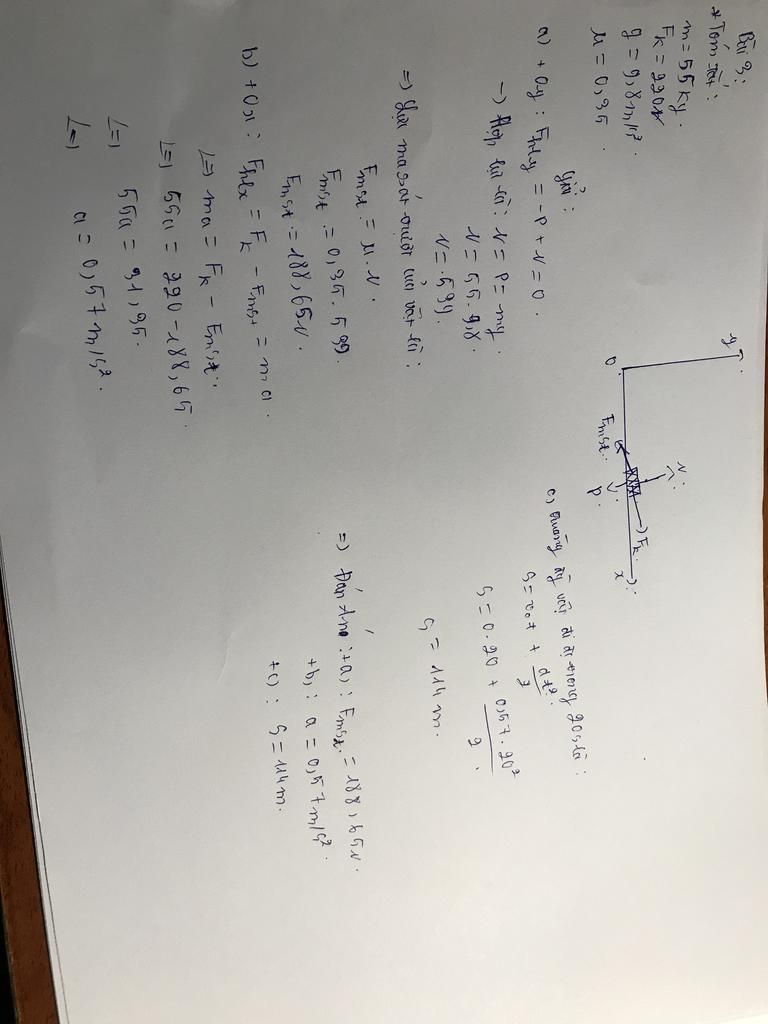 Bài 3:
* Tóm tắt:
m = 55 kg.
Fk = 220N
g = 9,8 m/s².
μ = 0,35.
Giải:
a) + Oy: Fhly = -P + N = 0.
→ Hợp lực là: N = P = mg.
N = 55. 9,8
N = 539.
=> Lực ma sát trượt của vật là:
Fmst = μ. N.
Fmst = 0,35. 539.
Fmst = 188,65N.
b) + Ox: Fhlx = Fk - Fmst = m.a.
<=> ma = Fk - Fmst.
<=> 55a = 220 - 188,65.
<=> 55a = 31,35.
<=> a = 0,57 m/s².
y
O
Fmst.
N
P
Fk
x
c) Quãng đg vật đi đc trong 20s là:
S = v₀t + at²/2.
S = 0. 20 + 0,57. 20²/2.
S = 114 m.
=> Đáp án: +a): Fmst. = 188,65N.
+b): a = 0,57 m/s².
+c): S = 114m.